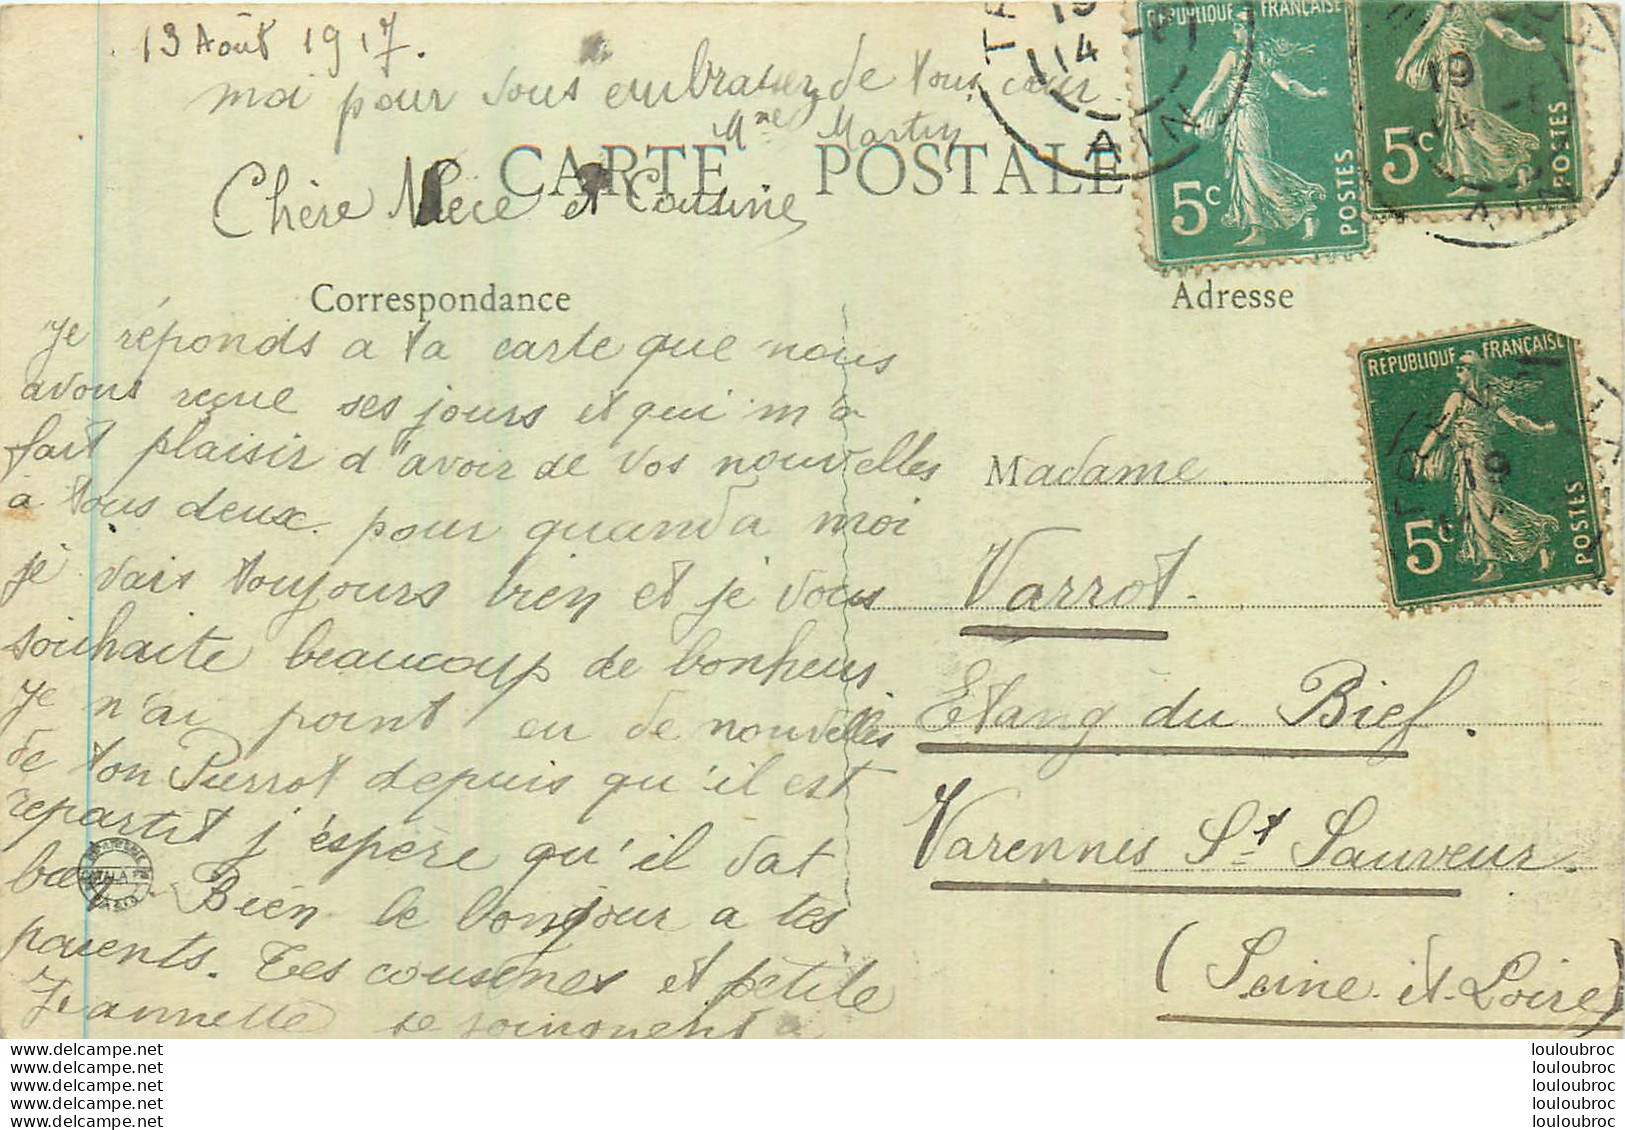 13 Août 1917.
moi pour vous embrasser de tous cœur
Mme Martin
CARTE POSTALE
Chère Nièce et Cousine
Correspondance
Adresse
Je réponds a ta carte que nous
avons reçue ses jours et qui m'a
fait plaisir d'avoir de vos nouvelles
à tous deux. pour quand a moi
je vais toujours bien et je vous
souhaite beaucoup de bonheur
Je n'ai point eu de nouvelles
de ton Pierrot depuis qu'il est
repartit j'espère qu'il vat
Bien le bonjour a tes
parents. Tes cousines et petite
Jeannette se joingnent a
Madame
Varrot.
Etang du Bief.
Varennes St Sauveur.
(Seine et Loire)
RÉPUBLIQUE FRANÇAISE
5c POSTES
5c POSTES
RÉPUBLIQUE FRANÇAISE
5c POSTES
19
14
AIN
19
14
AIN
19
www.delcampe.net
www.delcampe.net
www.delcampe.net
www.delcampe.net
www.delcampe.net
louloubroc
louloubroc
louloubroc
louloubroc
louloubroc